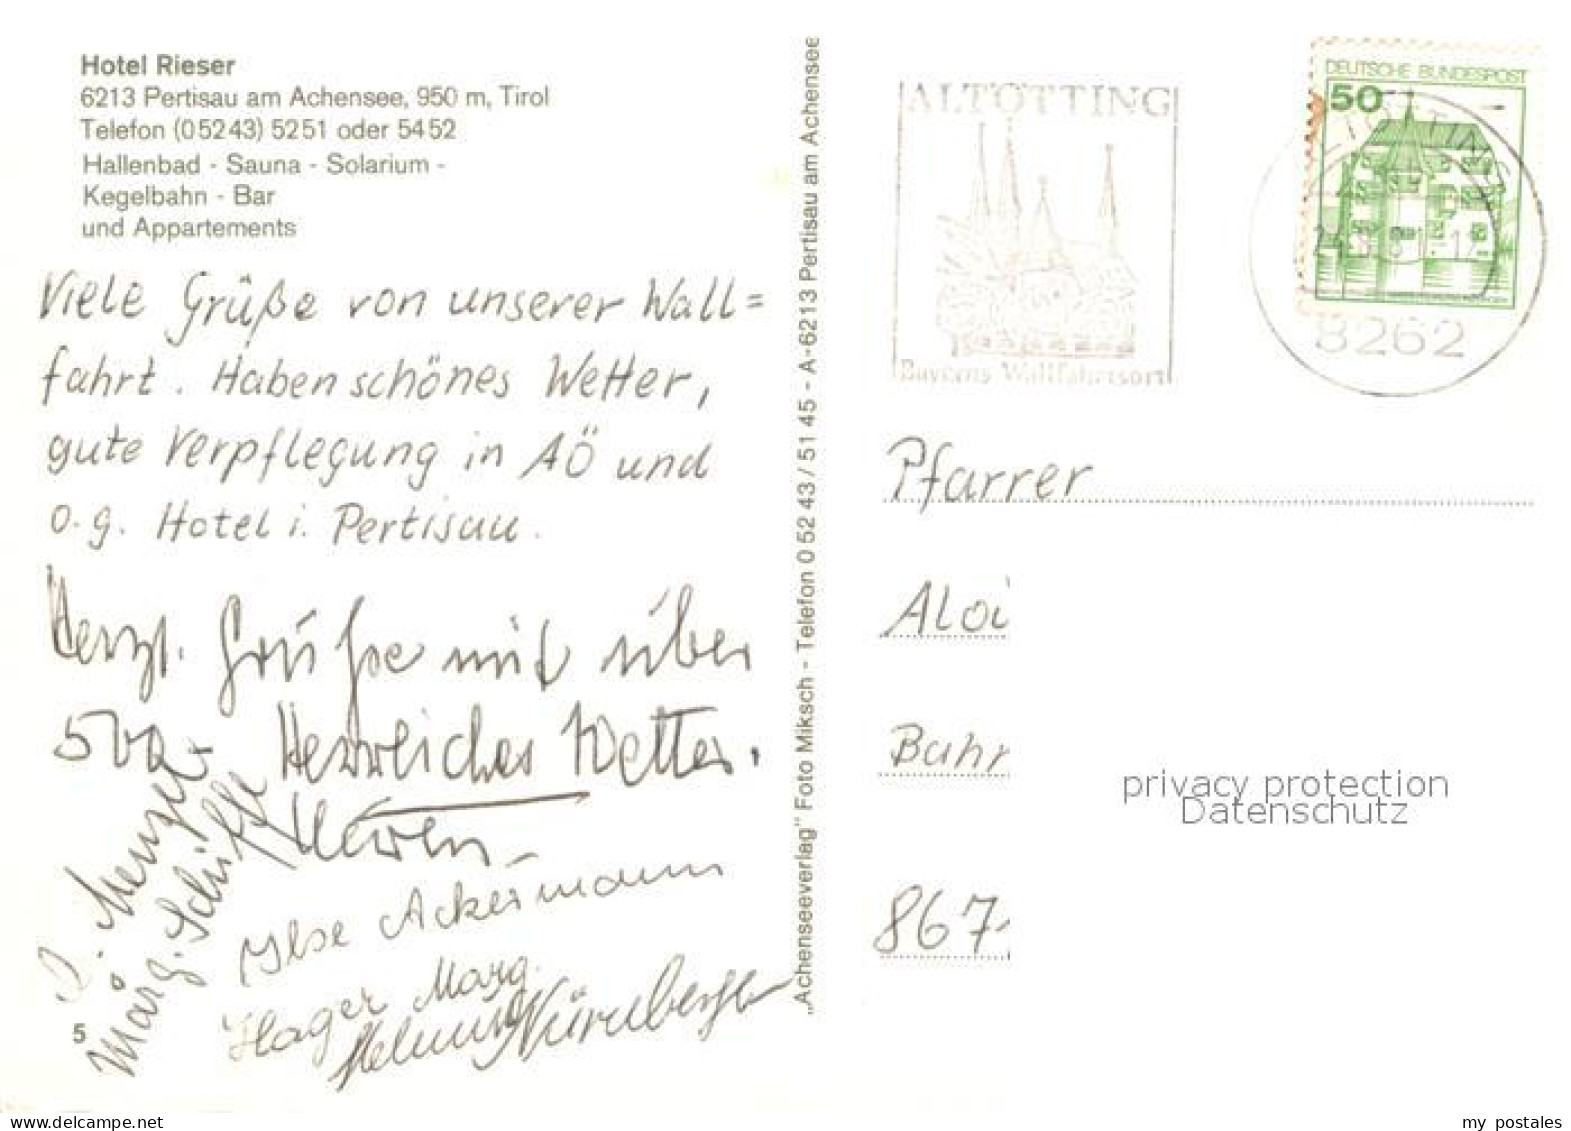 Hotel Rieser
6213 Pertisau am Achensee, 950 m, Tirol
Telefon (05243) 5251 oder 5452
Hallenbad - Sauna - Solarium -
Kegelbahn - Bar
und Appartements
Viele Grüße von unserer Wall=
fahrt. Haben schönes Wetter,
gute Verpflegung in AÖ und
o.g. Hotel i. Pertisau.
Herzl. Grüße mit über
Herrliches Wetter.
Ilse Ackermann
Hager Marg.
Nürnberger
Marg. Schiffe
5
„Achenseeverlag" Foto Miksch - Telefon 0 52 43 / 51 45 - A-6213 Pertisau am Achensee
ALTÖTTING
Bayerns Wallfahrtsort
DEUTSCHE BUNDESPOST
50
8262
Pfarrer
Aloi
Bahr
867
privacy protection
Datenschutz
ansichtskarten-center
my postales